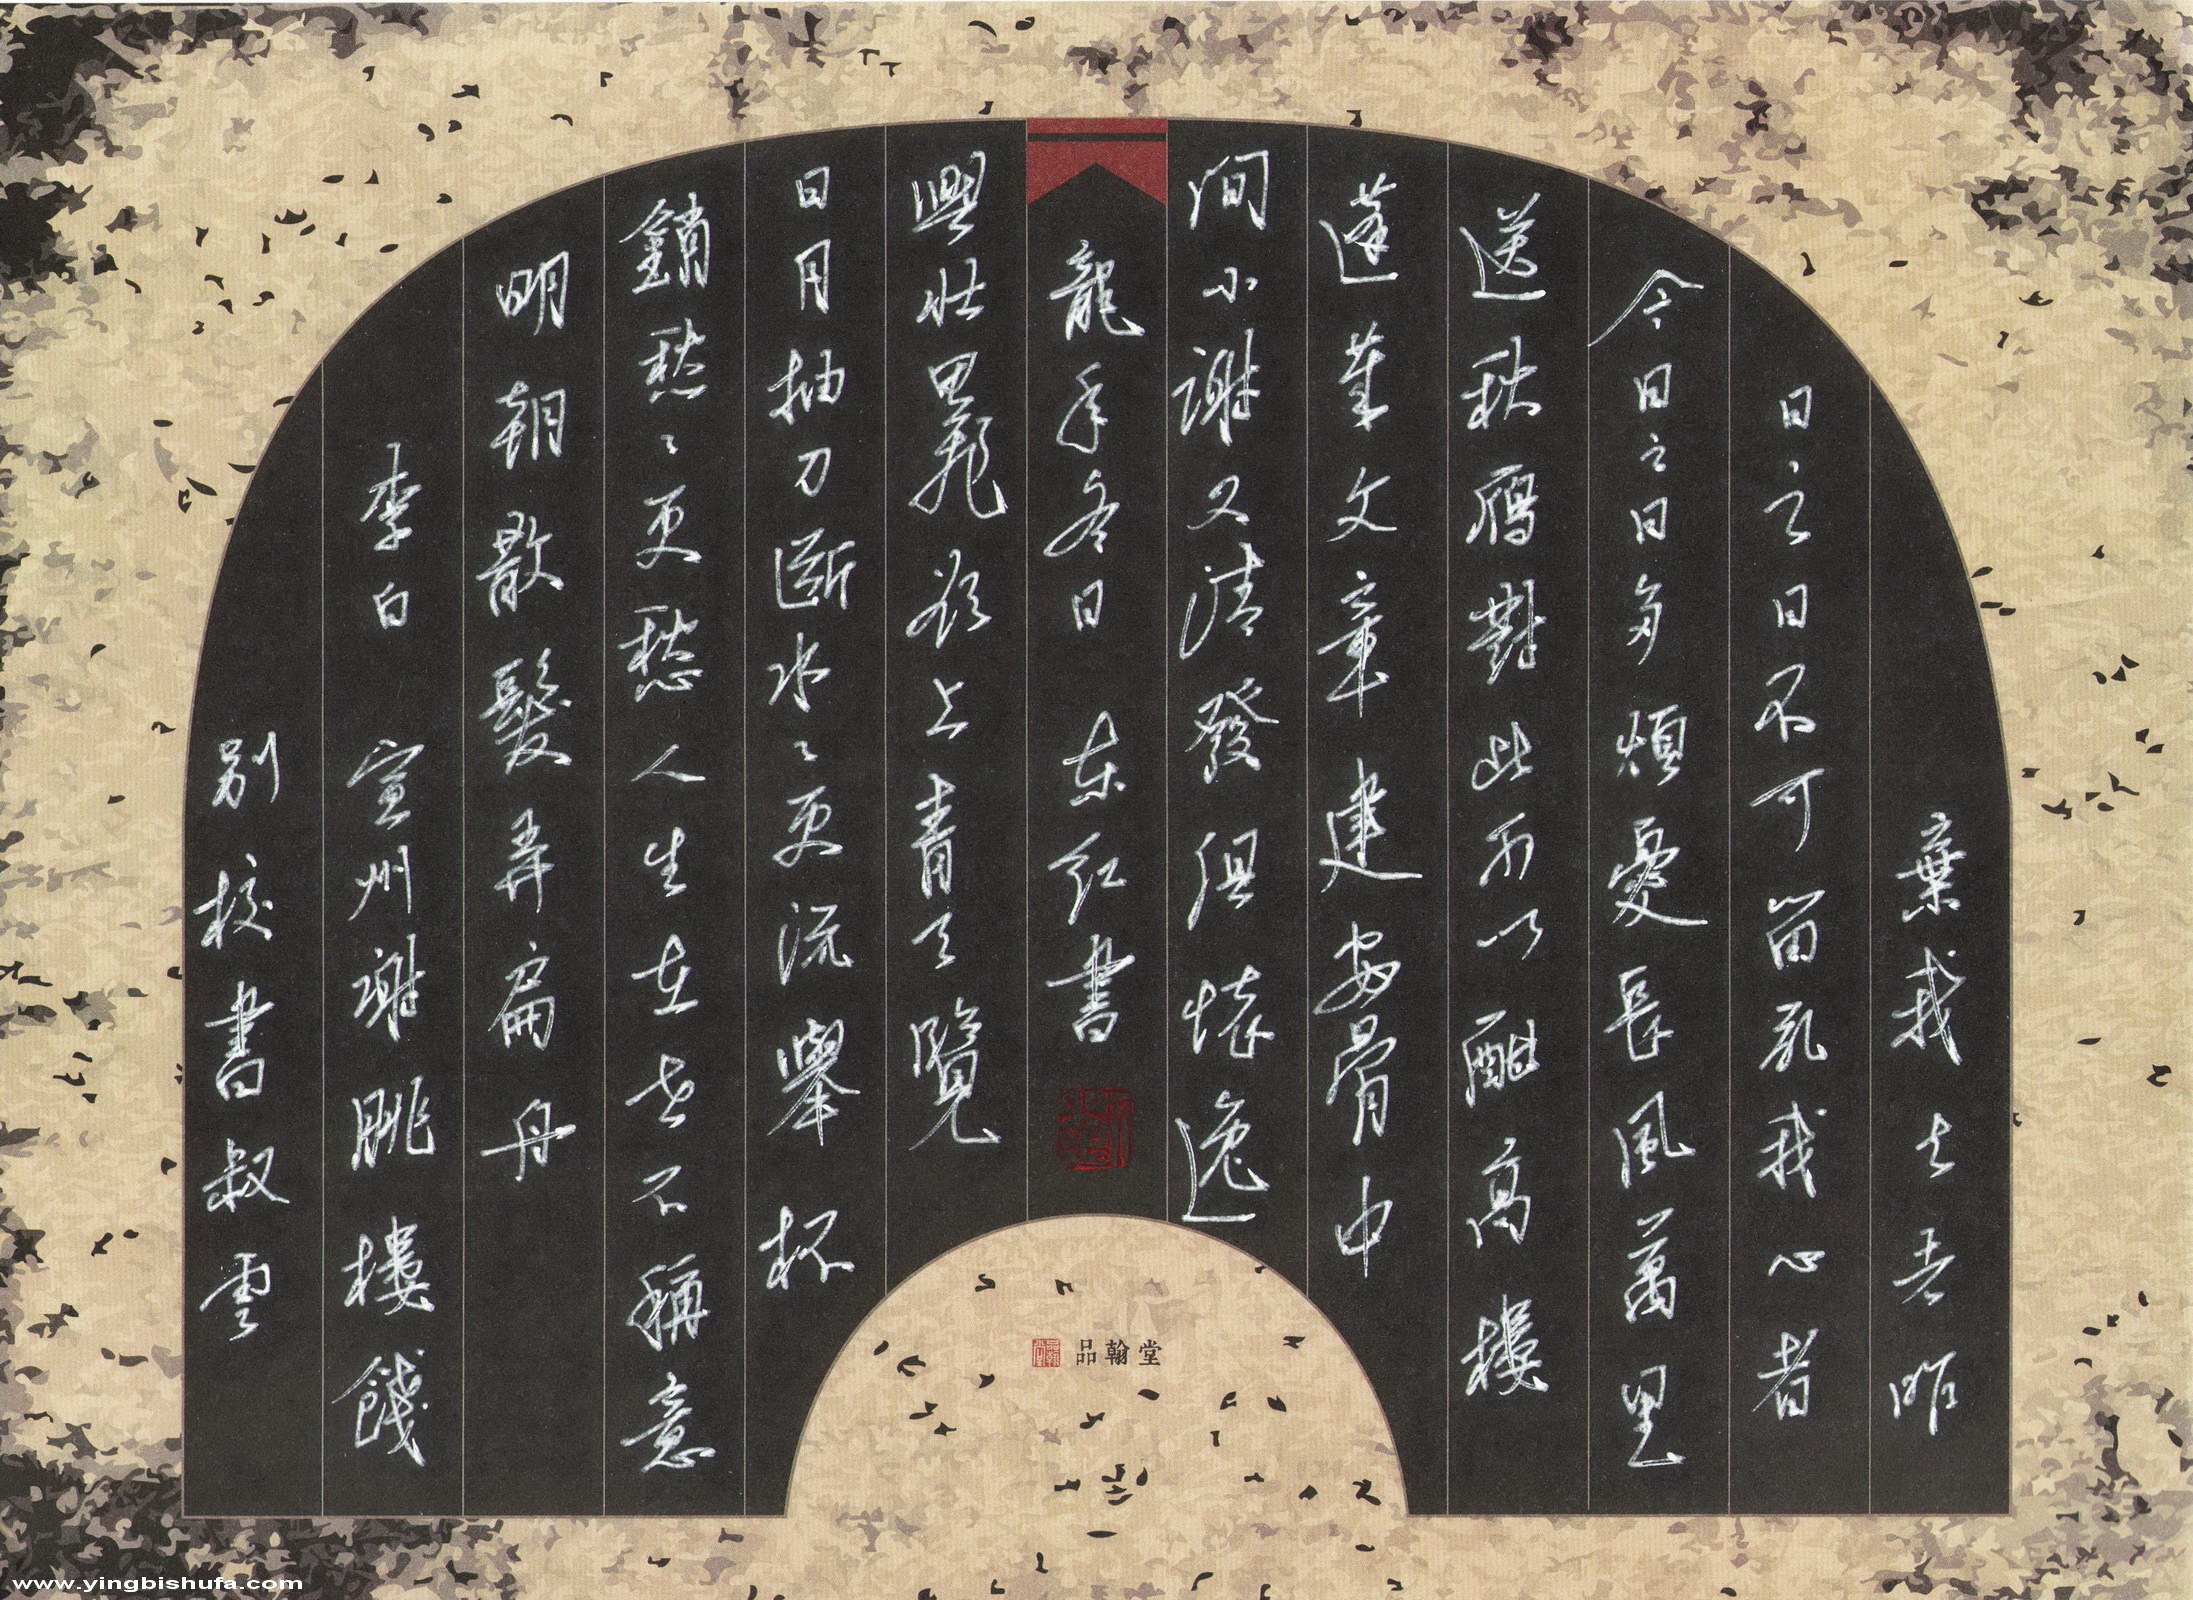 棄我去者昨
日之日不可留亂我心者
今日之日多煩憂長風萬里
送秋雁對此可以酣高樓
蓬萊文章建安骨中
間小謝又清發俱懷逸
龍年冬日 東红書
興壯思飛欲上青天覽
日月抽刀斷水々更流舉杯
銷愁々更愁人生在世不稱意
明朝散髮弄扁舟
李白 宣州謝朓樓餞
別校書叔雲
品翰堂
www.yingbishufa.com